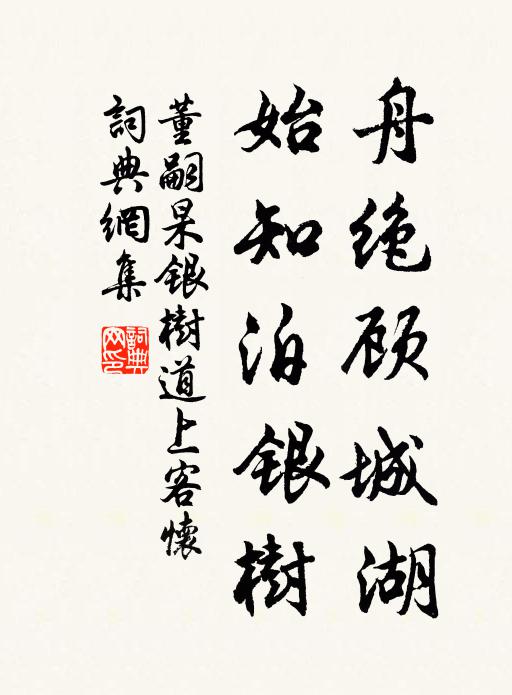 舟绝顾城湖
始知泊银樹
董嗣杲銀樹道上客懷
詞典網集
詞典网印